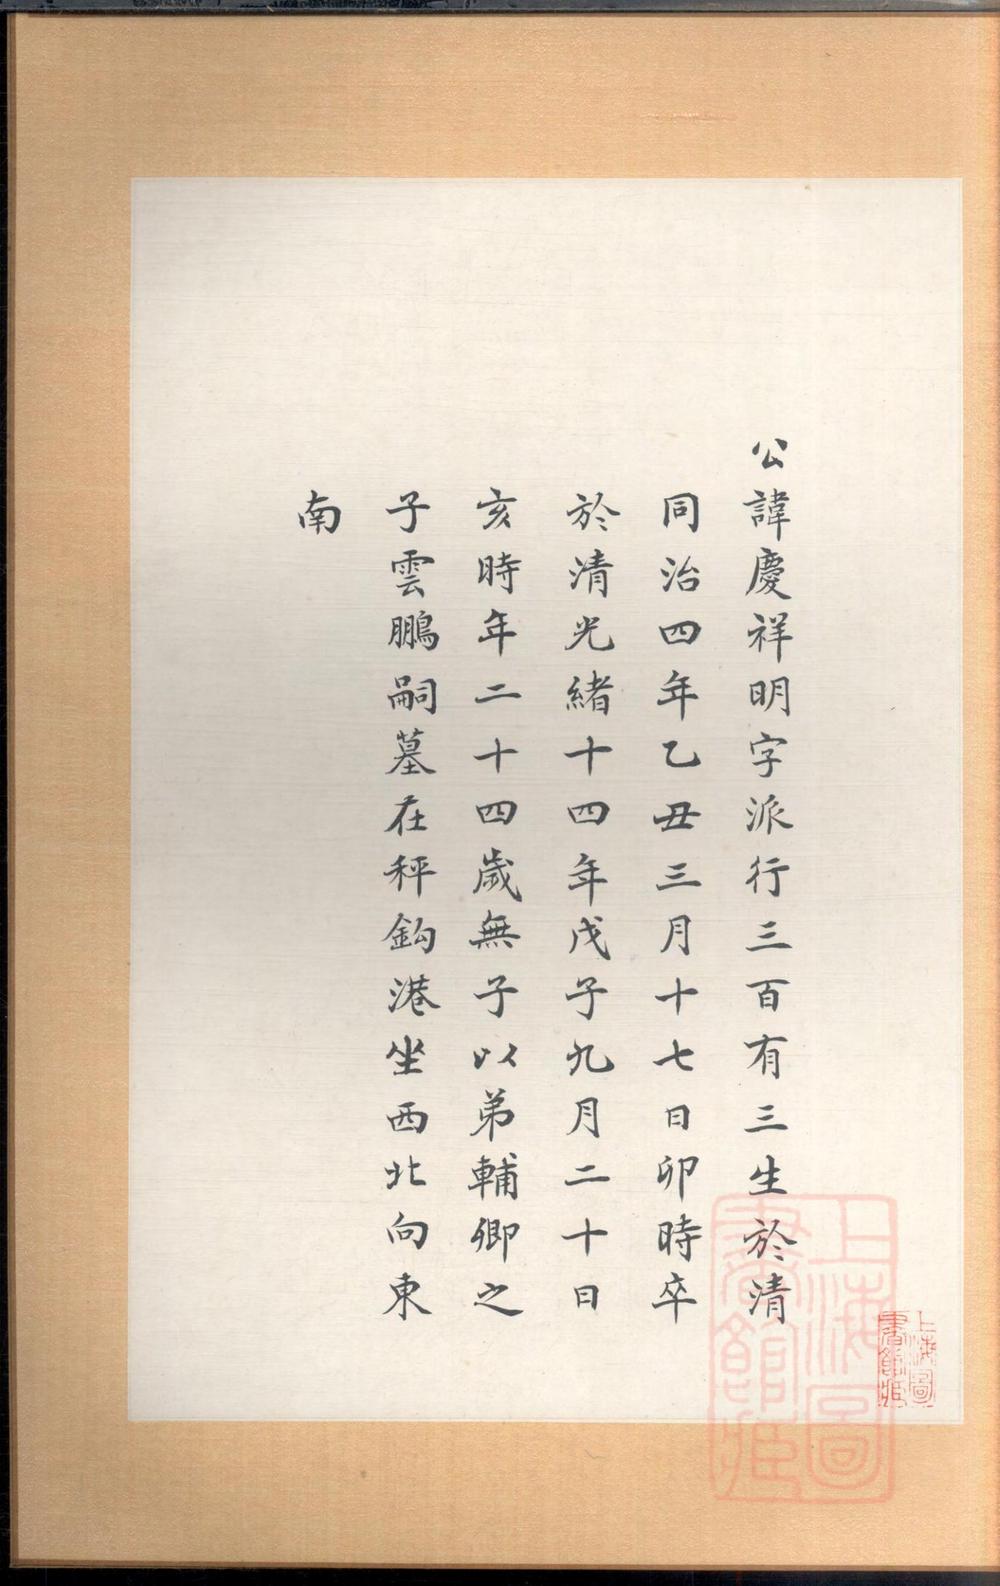 公諱慶祥明字派行三百有三生於清
同治四年乙丑三月十七日卯時卒
於清光緒十四年戊子九月二十日
亥時年二十四歲無子以弟輔卿之
子雲鵬嗣墓在秤鈎港坐西北向東
南
上海圖
書館藏
上海圖
書館藏